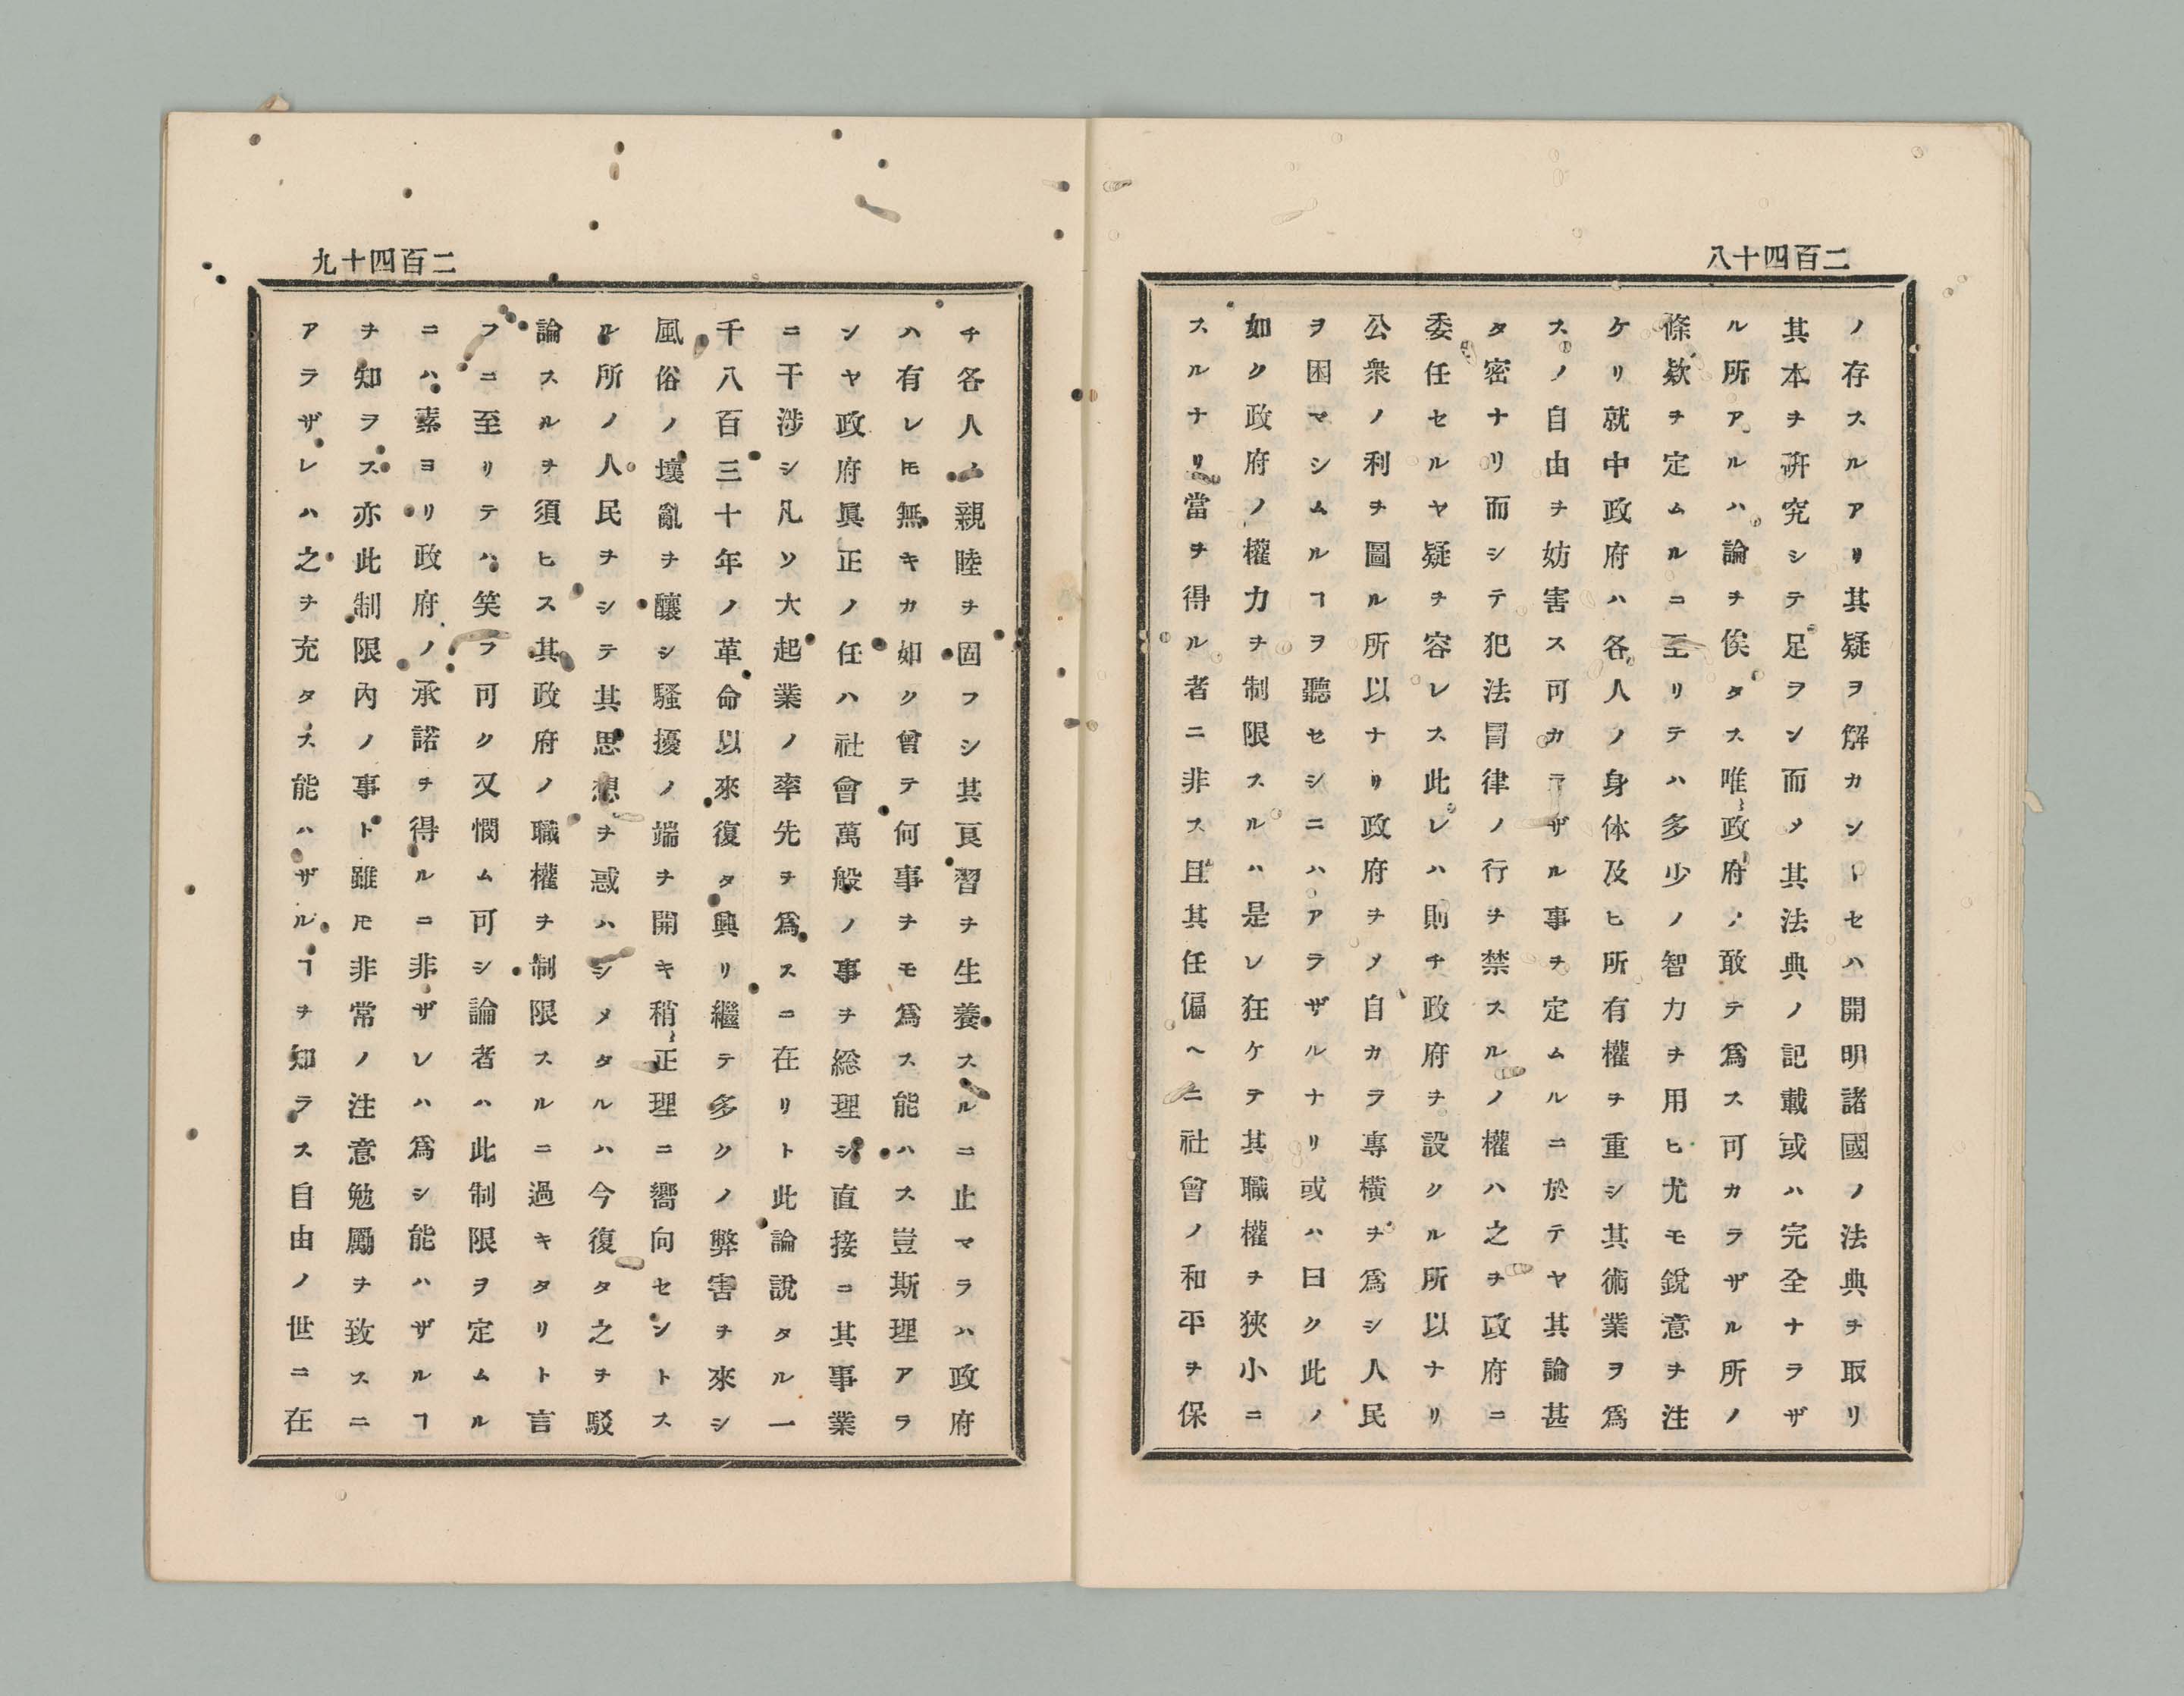 二百四十八
ノ存スルアリ其疑ヲ解カントセハ開明諸國ノ法典ヲ取リ
其本ヲ硏究シテ足ランノミ而メ其法典ノ記載或ハ完全ナラザ
ル所アルハ論ヲ俟タス唯政府ノ敢テ爲ス可カラザル所ノ
條欵ヲ定ムルニ至リテハ多少ノ智力ヲ用ヒ尤モ銳意ヲ注
ケリ就中政府ハ各人ノ身体及ヒ所有權ヲ重シ其術業ヲ爲
スノ自由ヲ妨害ス可カラザル事ヲ定ムルニ於テヤ其論甚
タ密ナリ而シテ犯法冒律ノ行ヲ禁スルノ權ハ之ヲ政府ニ
委任セルヤ疑ヲ容レス此レハ則チ政府ヲ設クル所以ナリ
公衆ノ利ヲ圖ル所以ナリ政府ヲメ自カラ專橫ヲ爲シ人民
ヲ困マシムルヿヲ聽セシニハアラザルナリ或ハ曰ク此ノ
如ク政府ノ權力ヲ制限スルハ是レ狂ケテ其職權ヲ狹小ニ
スルナリ當ヲ得ル者ニ非ス且其任偏ヘニ社會ノ和平ヲ保
二百四十九
チ各人ノ親睦ヲ固フシ其良習ヲ生養スルニ止マラハ政府
ハ有レㇳモ無キカ如ク曾テ何事ヲモ爲ス能ハス豈斯理アラ
ンヤ政府眞正ノ任ハ社會萬般ノ事ヲ総理シ直接ニ其事業
ニ干涉シ凡ソ大起業ノ率先ヲ爲スニ在リト此論說タル一
千八百三十年ノ革命以來復タ興リ繼テ多クノ弊害ヲ來シ
風俗ノ壞亂ヲ釀シ騷擾ノ端ヲ開キ稍正理ニ嚮向セントス
ル所ノ人民ヲシテ其思想ヲ惑ハシメタルハ今復タ之ヲ駁
論スルヲ須ヒス其政府ノ職權ヲ制限スルニ過キタリト言
フニ至リテハ笑フ可ク又憫ム可シ論者ハ此制限ヲ定ムル
ニハ素ヨリ政府ノ承諾ヲ得ルニ非ザレハ爲シ能ハザルヿ
ヲ知ラス亦此制限內ノ事ト雖モ非常ノ注意勉勵ヲ致スニ
アラザレハ之ヲ充タス能ハザルヿヲ知ラス自由ノ世ニ在